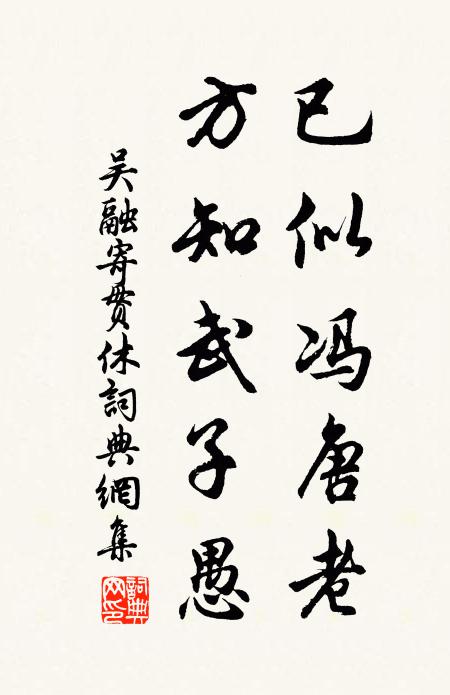 已似冯唐老
方知武子愚
吴融寄贯休詞典網集
詞典网印